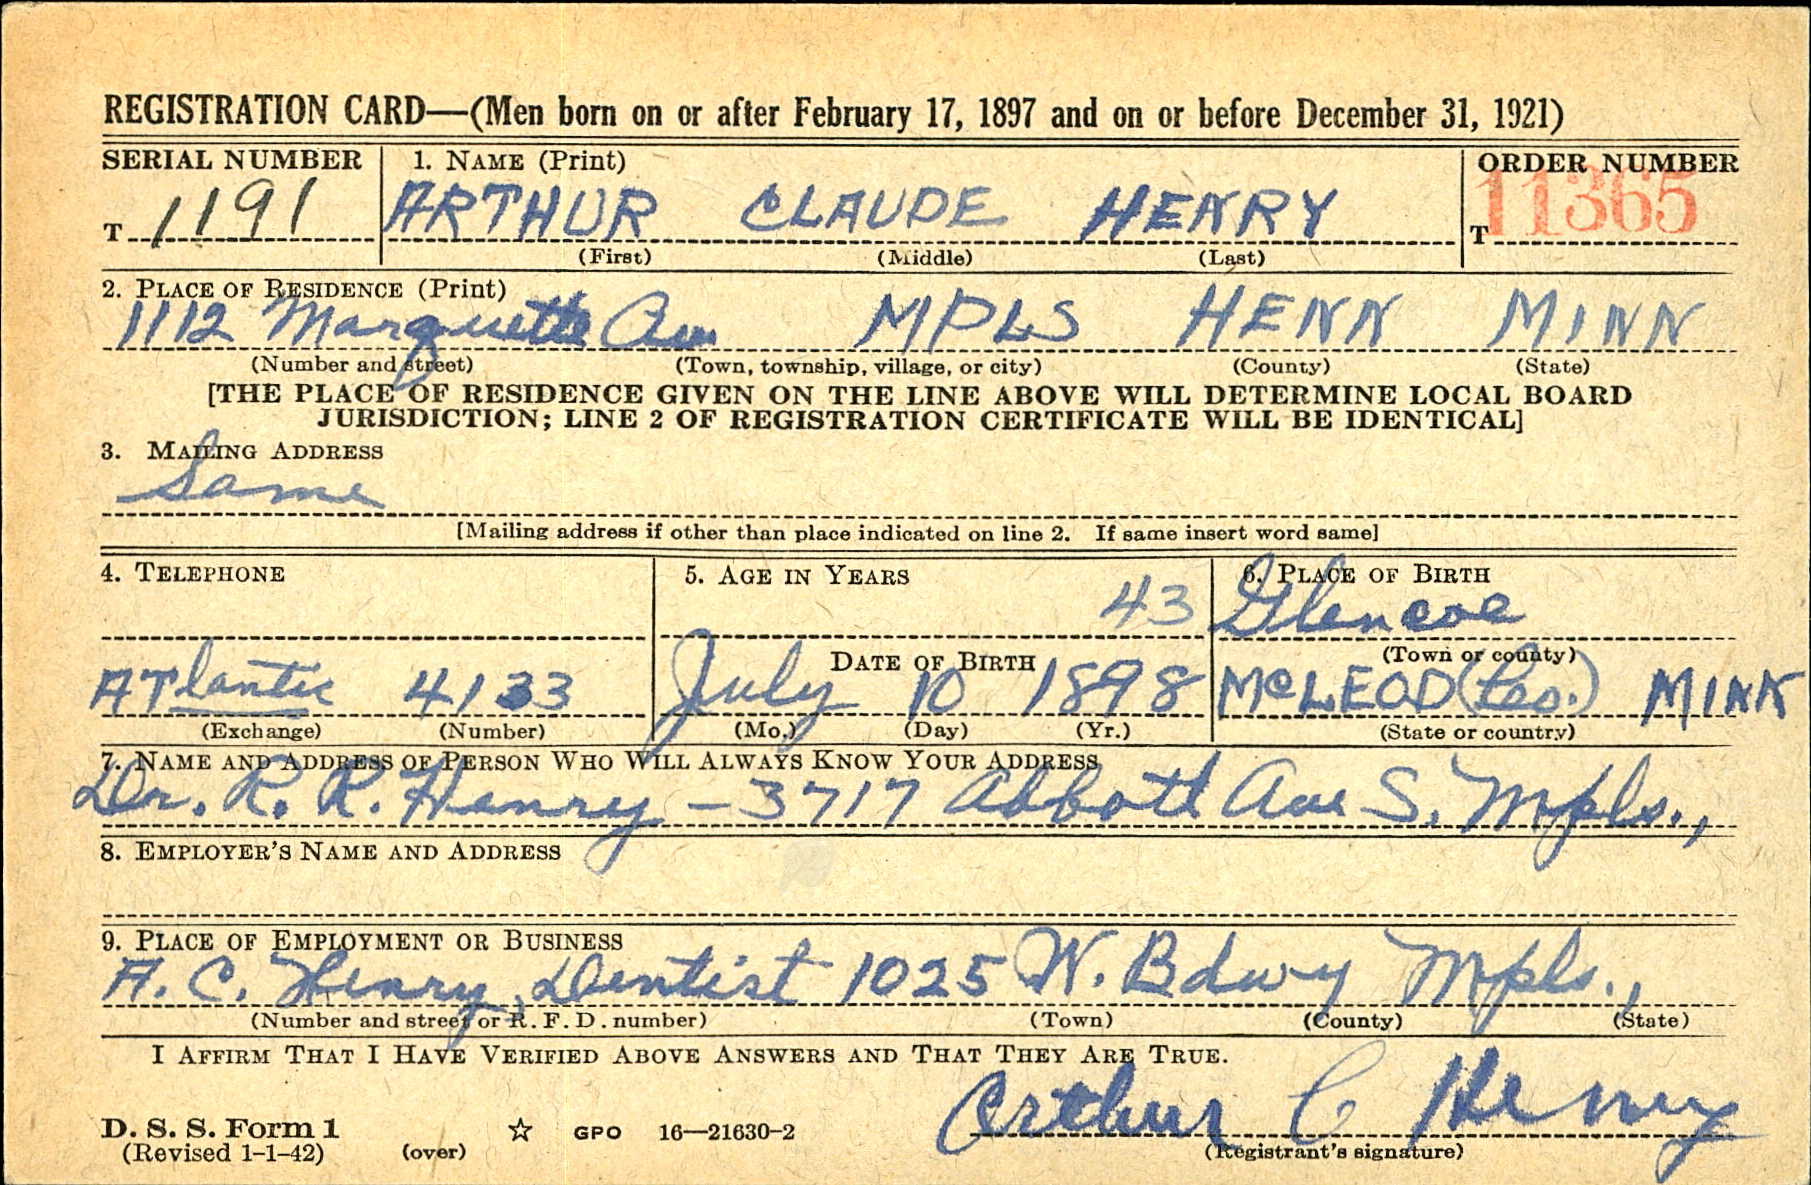 REGISTRATION CARD—(Men born on or after February 17, 1897 and on or before December 31, 1921)
SERIAL NUMBER 1. NAME (Print) ORDER NUMBER
T 1191 ARTHUR CLAUDE HENRY T 11365
(First) (Middle) (Last)
2. PLACE OF RESIDENCE (Print)
1112 Marquette Ave MPLS HENN MINN
(Number and street) (Town, township, village, or city) (County) (State)
[THE PLACE OF RESIDENCE GIVEN ON THE LINE ABOVE WILL DETERMINE LOCAL BOARD
JURISDICTION; LINE 2 OF REGISTRATION CERTIFICATE WILL BE IDENTICAL]
3. MAILING ADDRESS
Same
[Mailing address if other than place indicated on line 2. If same insert word same]
4. TELEPHONE 5. AGE IN YEARS 6. PLACE OF BIRTH
43 Glencoe
DATE OF BIRTH (Town or county)
ATlantic 4133 July 10 1898 McLEOD (Co.) MINN
(Exchange) (Number) (Mo.) (Day) (Yr.) (State or country)
7. NAME AND ADDRESS OF PERSON WHO WILL ALWAYS KNOW YOUR ADDRESS
Dr. R. R. Henry – 3717 Abbott Ave S. Mpls.,
8. EMPLOYER'S NAME AND ADDRESS
9. PLACE OF EMPLOYMENT OR BUSINESS
A. C. Henry, Dentist 1025 W. Bdwy Mpls.,
(Number and street or R. F. D. number) (Town) (County) (State)
I AFFIRM THAT I HAVE VERIFIED ABOVE ANSWERS AND THAT THEY ARE TRUE.
Arthur C Henry
D. S. S. Form 1
(Revised 1-1-42) (over) ☆ GPO 16—21630-2 (Registrant's signature)